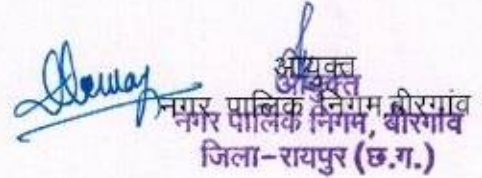 आयुक्त
आयुक्त
नगर पालिक निगम बीरगांव
नगर पालिक निगम, बीरगांव
जिला-रायपुर (छ.ग.)